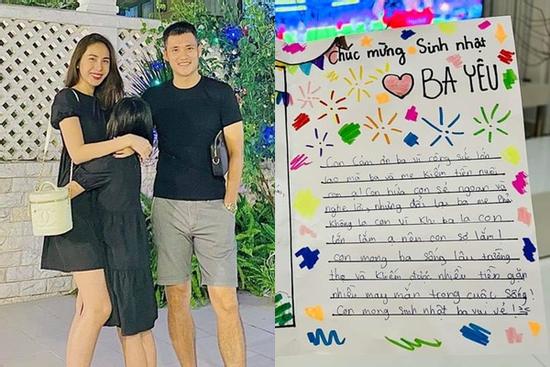 Chúc mừng Sinh nhật
BA YÊU
Con Cảm ơn ba vì công sức lớn
lao mà ba và mẹ kiếm tiền nuôi
con ạ! Con hứa con sẽ ngoan và
nghe lời, nhưng đổi lại ba mẹ
không la con vì khi ba la con
lớn lắm ạ nên con sợ lắm!
con mong ba sống lâu trường
thọ và kiếm được nhiều tiền gặp
nhiều may mắn trong cuộc sống!
Con mong sinh nhật ba vui vẻ!